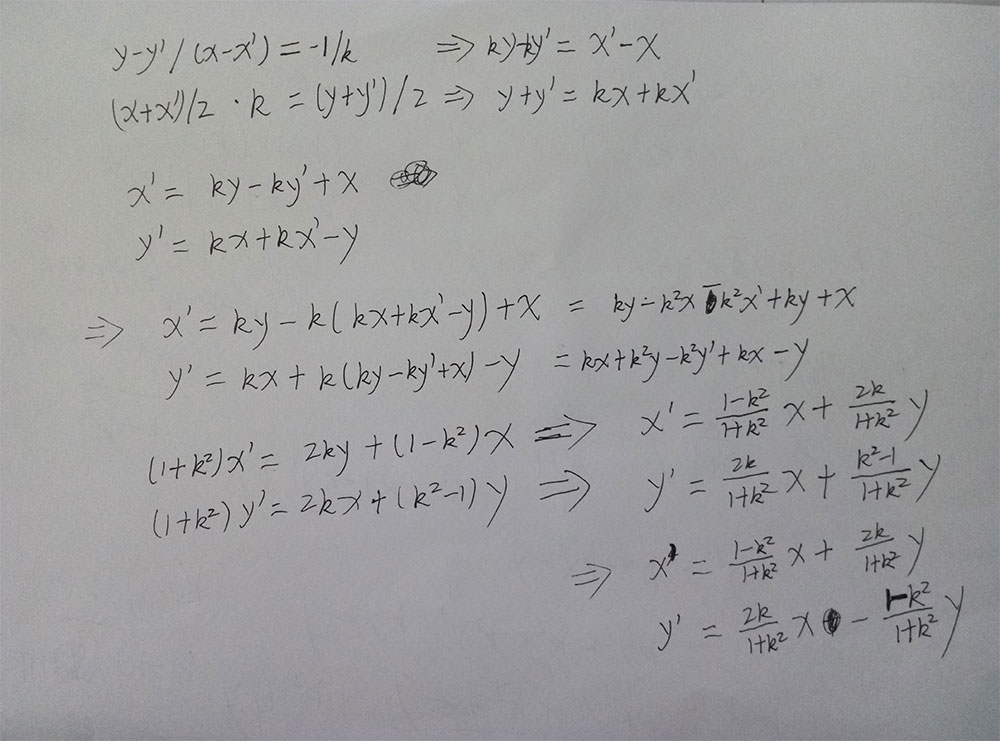 y-y'/(x-x') = -1/k ⇒ ky-ky' = x'-x
(x+x')/2 · k = (y+y')/2 ⇒ y+y' = kx+kx'
x' = ky-ky'+x
y' = kx+kx'-y
⇒ x' = ky-k(kx+kx'-y)+x = ky-k²x-k²x'+ky+x
y' = kx+k(ky-ky'+x)-y = kx+k²y-k²y'+kx-y
(1+k²)x' = 2ky+(1-k²)x ⇒ x' = \frac{1-k²}{1+k²}x + \frac{2k}{1+k²}y
(1+k²)y' = 2kx+(k²-1)y ⇒ y' = \frac{2k}{1+k²}x + \frac{k²-1}{1+k²}y
⇒ x' = \frac{1-k²}{1+k²}x + \frac{2k}{1+k²}y
y' = \frac{2k}{1+k²}x - \frac{1-k²}{1+k²}y